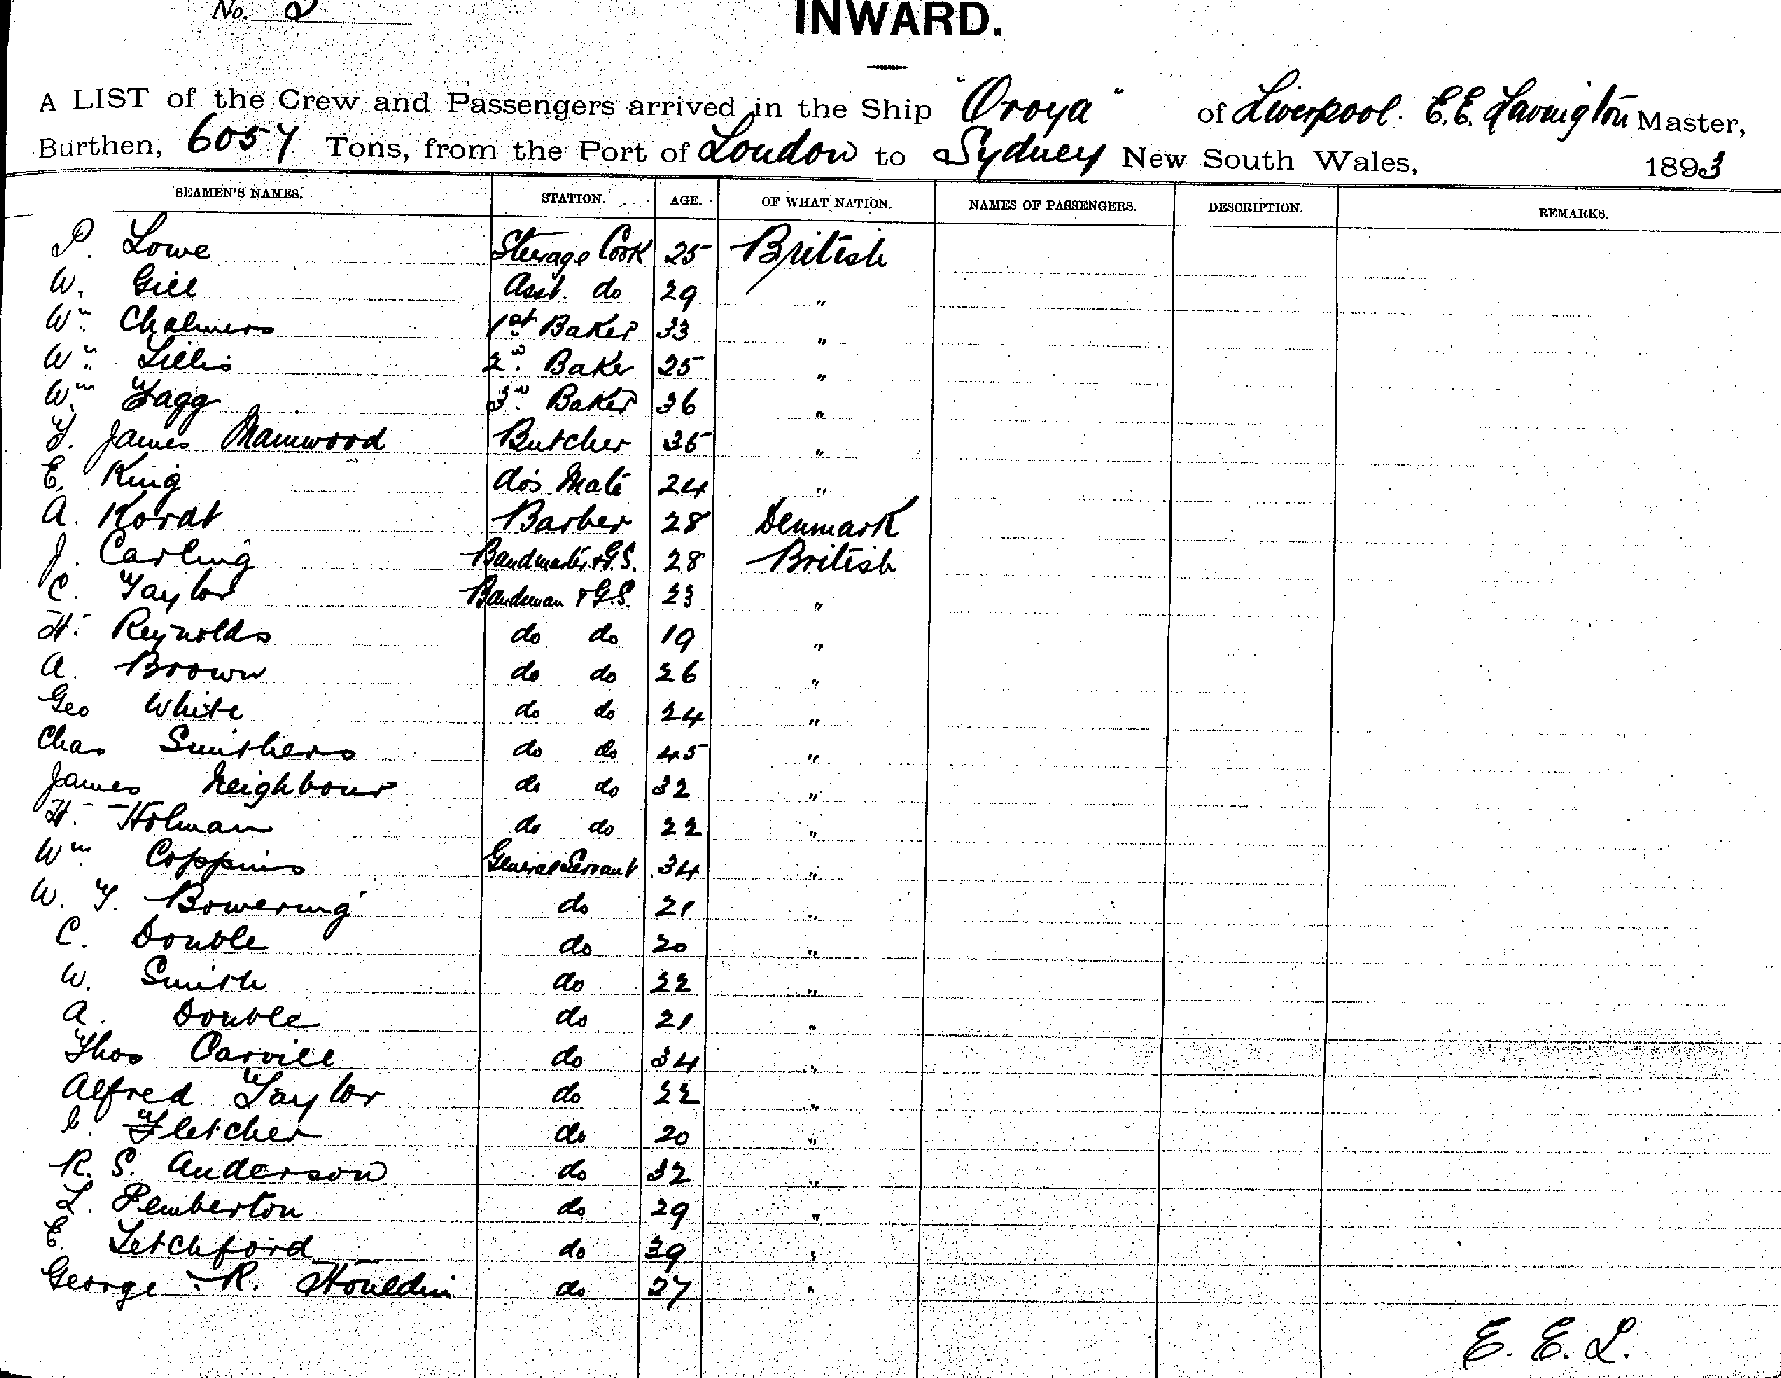 No. 2
INWARD.
A LIST of the Crew and Passengers arrived in the Ship "Oroya" of Liverpool. E.E. Lavington Master,
Burthen, 6057 Tons, from the Port of London to Sydney New South Wales, 1893
SEAMEN'S NAMES. STATION. AGE. OF WHAT NATION. NAMES OF PASSENGERS. DESCRIPTION. REMARKS.
P. Lowe Sterage Cook 25 British
W. Gill Asst. do 29 "
Wm. Chalmers 1st Baker 33 "
Wm. Lillis 2nd Baker 25 "
Wm Fagg 3rd Baker 36 "
F. James Mamwood Butcher 35 "
E. King do's Mate 24 "
A. Kordt Barber 28 Denmark
J. Carling Bandmaster & G.S. 28 British
C. Taylor Bandsman & G.S. 23 "
H. Reynolds do do 19 "
A. Brown do do 26 "
Geo White do do 24 "
Chas Smithers do do 45 "
James Neighbour do do 32 "
H. Holman do do 22 "
Wm Coppins General Servant 34 "
W. F. Bowering do 21 "
C. Double do 20 "
W. Smith do 22 "
A. Double do 21 "
Thos Carvill do 34 "
Alfred Taylor do 22 "
Fletcher do 20 "
R. S. Anderson do 32 "
L. Pemberton do 29 "
E Letchford do 39 "
George R. Houldin do 27 "
E. E. L.